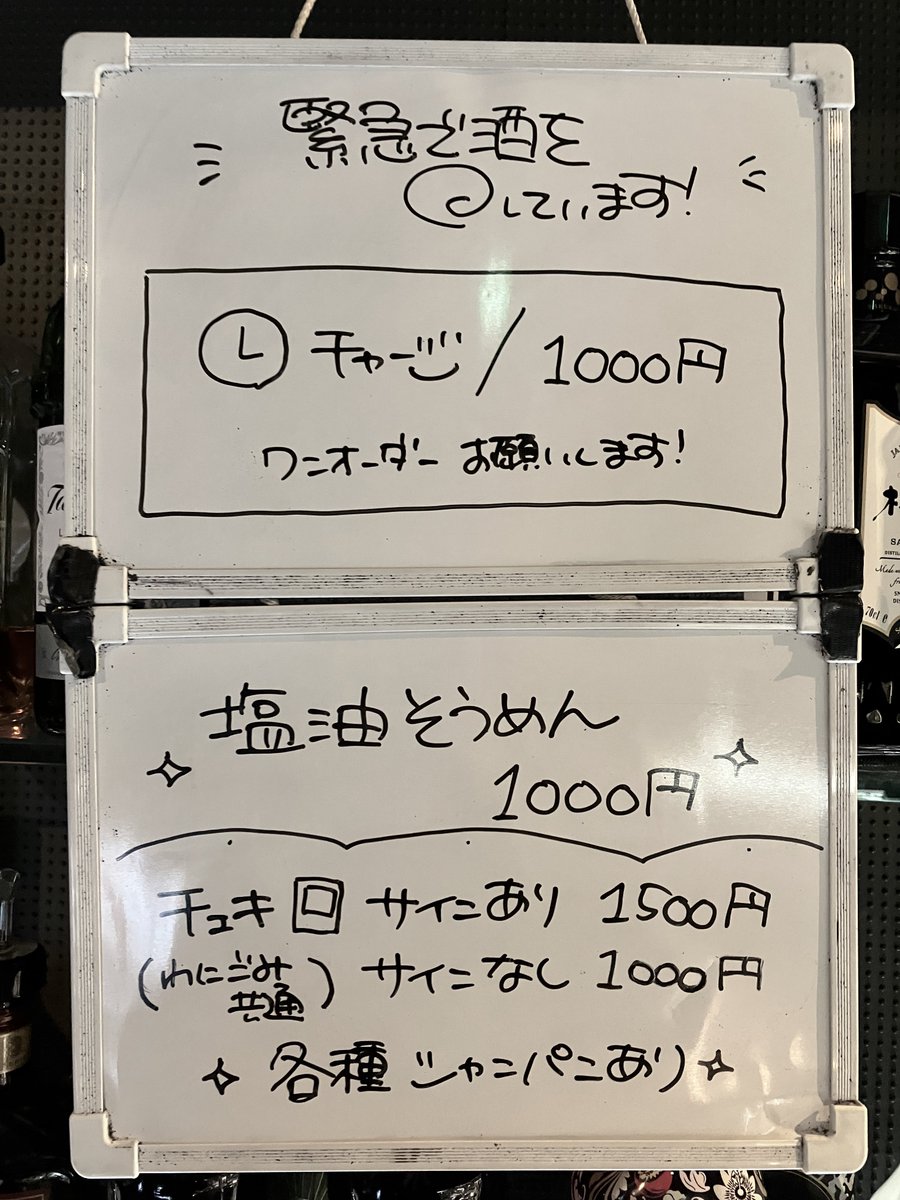 緊急で酒を
しています!
チャージ/1000円
ワンオーダーお願いします!
塩油そうめん
1000円
チェキ サインあり 1500円
(わにごみ共通) サインなし 1000円
各種シャンパンあり